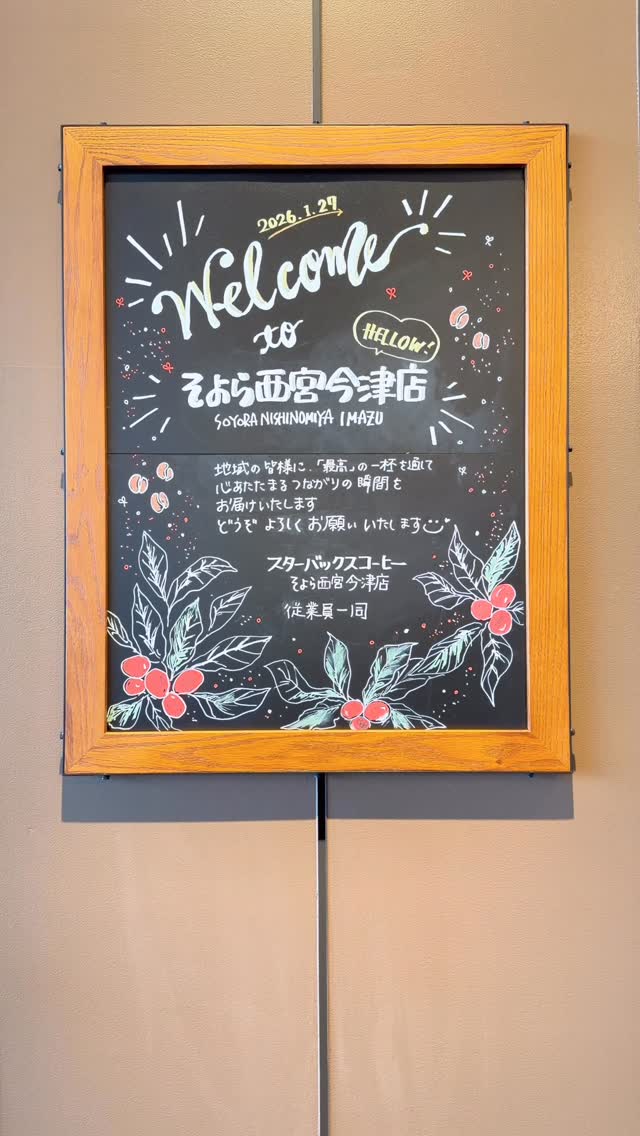 2026.1.27
Welcome
to
HELLOW!
そよら西宮今津店
SOYORA NISHINOMIYA IMAZU
地域の皆様に、「最高」の一杯を通して
心あたたまるつながりの瞬間を
お届けいたします
どうぞ よろしく お願い いたします
スターバックスコーヒー
そよら西宮今津店
従業員一同